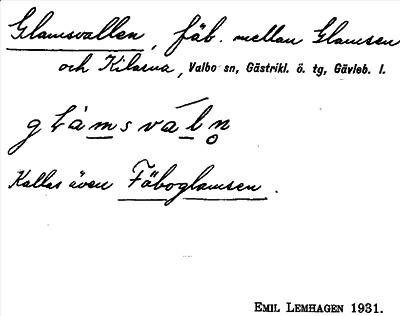 Glamsvallen, fäb. mellan Glamsen
och Kilarna, Valbo sn, Gästrikl. ö. tg, Gävleb. l.
glàmsváln̥
Kallas även Fäboglamsen.
EMIL LEMHAGEN 1931.